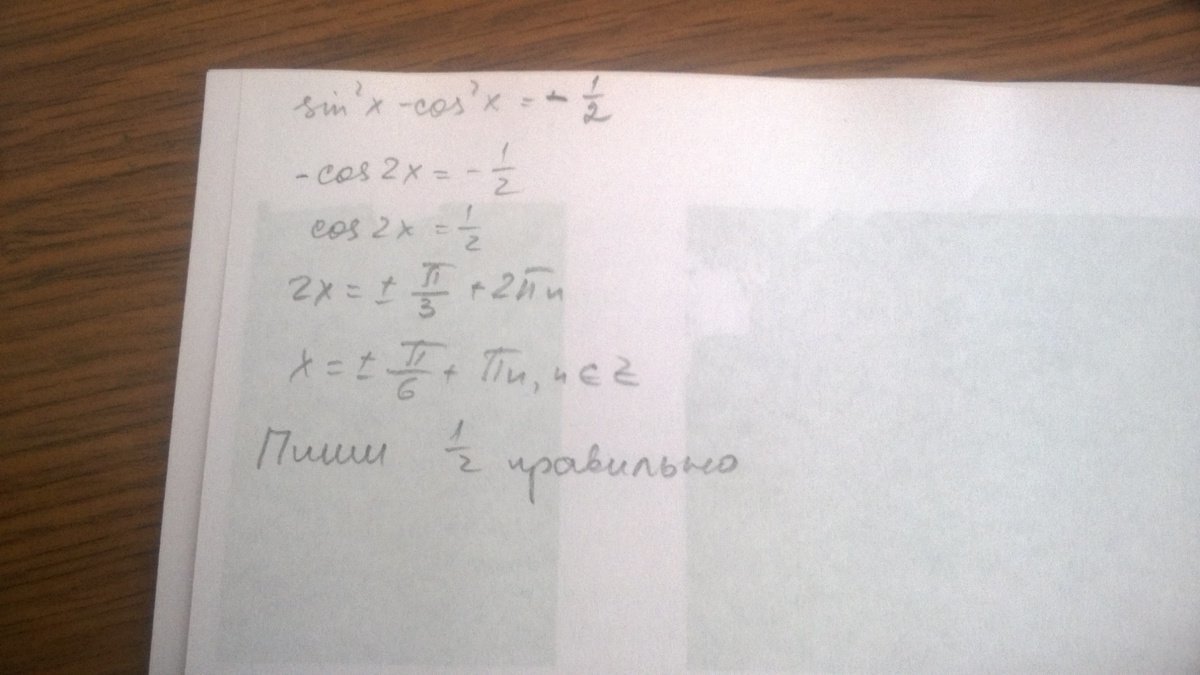 sin²x - cos²x = - 1/2
- cos 2x = - 1/2
cos 2x = 1/2
2x = ± π/3 + 2πn
x = ± π/6 + πn, n ∈ Z
Пиши 1/2 правильно